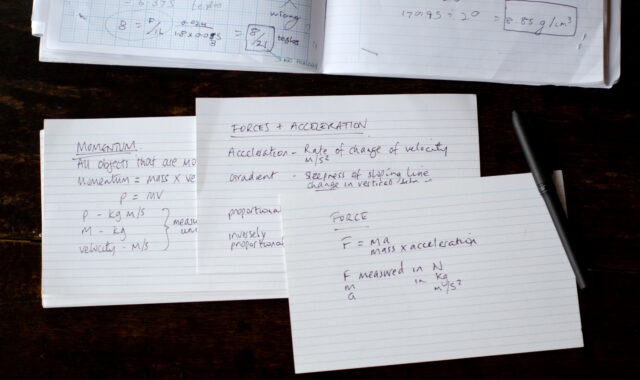 wrong
170.95 ÷ 20 = 8.85 g/cm³
MOMENTUM
All objects that are mo
Momentum = Mass x ve
P = MV
P - kg m/s
M - kg
velocity - m/s
FORCES + ACCELERATION
Acceleration - Rate of change of velocity
m/s²
Gradient - Steepness of sloping line
change in vertical
proportional
inversely
proportional
FORCE
F = ma
mass x acceleration
F measured in N
m in kg
a m/s²